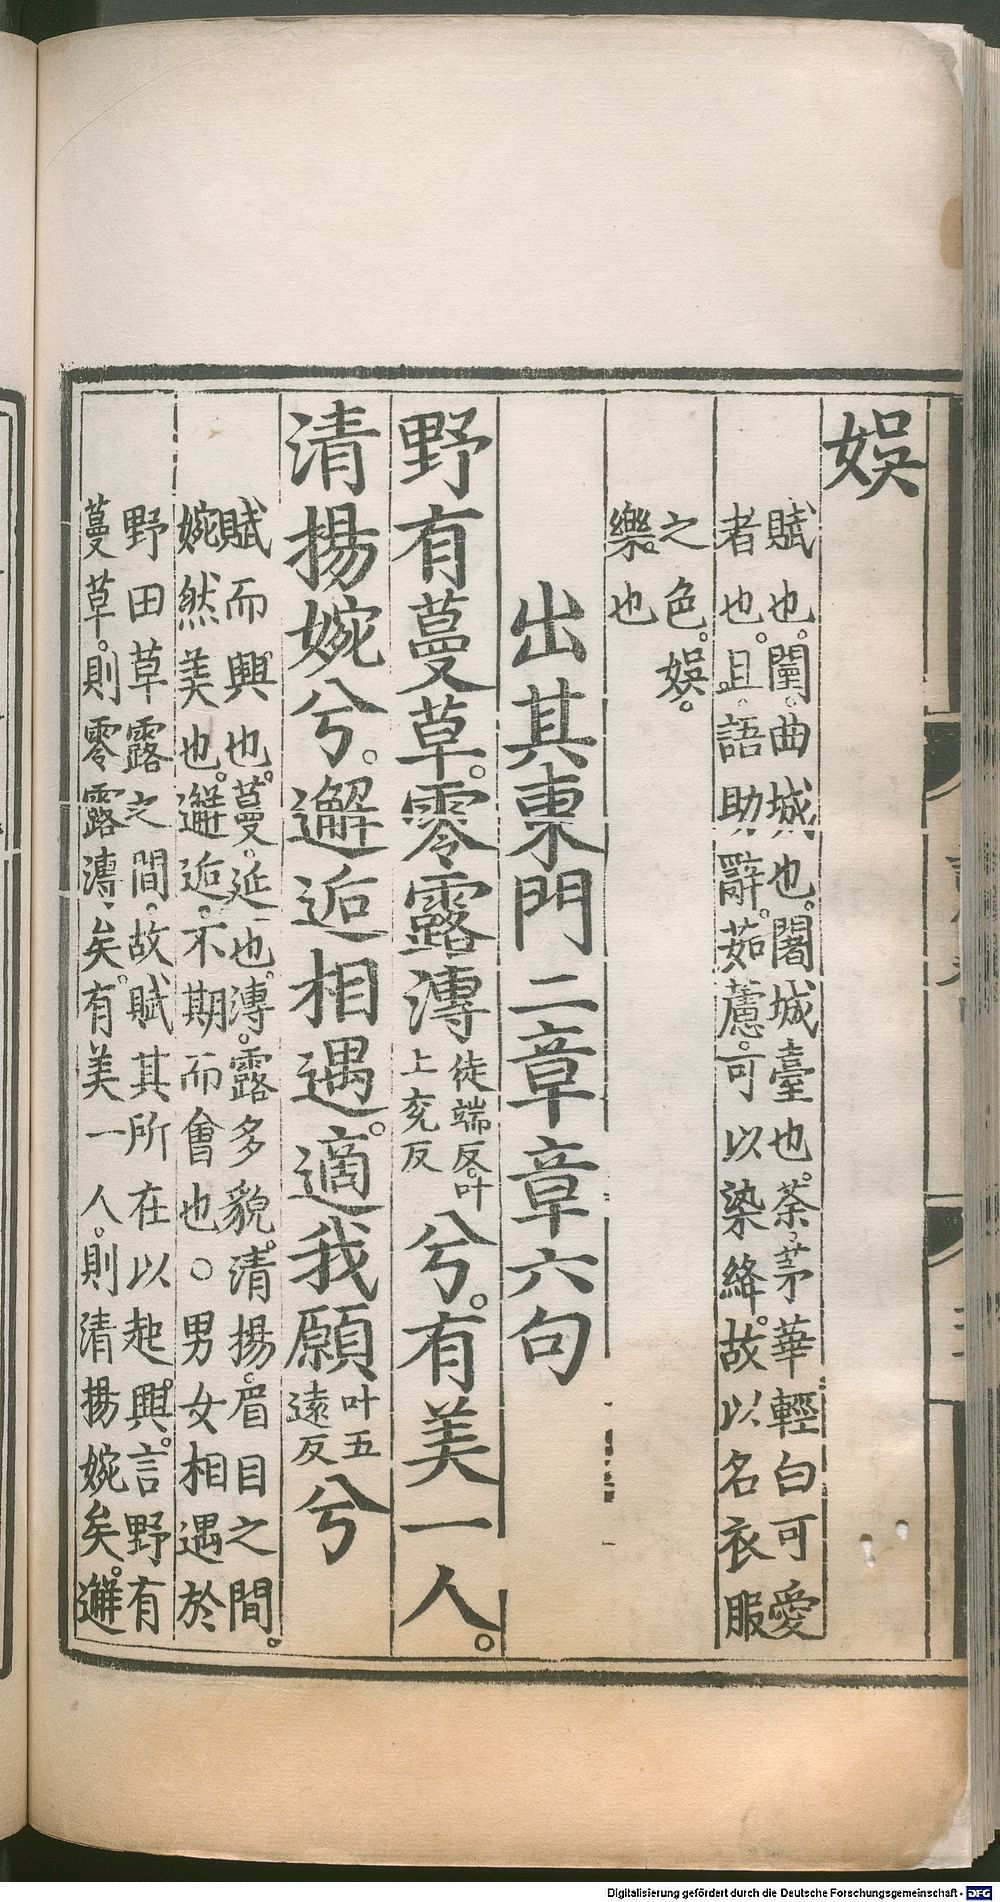 娛
賦也。闉。曲城也。闍城臺也。荼。茅華輕白可愛
者也。且。語助辭。茹藘。可以染絳。故以名衣服
之色。娛。
樂。也
出其東門二章章六句
野有蔓草。零露漙徒端反。叶上兖反兮。有美一人。
清揚婉兮。邂逅相遇。適我願叶五遠反兮
賦而興也。蔓。延也。漙。露多貌。清揚。眉目之間。
婉然美也。邂逅。不期而會也。○男女相遇於
野田草露之間。故賦其所在以起興。言野有
蔓草。則零露漙矣。有美一人。則清揚婉矣。邂
Digitalisierung gefördert durch die Deutsche Forschungsgemeinschaft - DFG